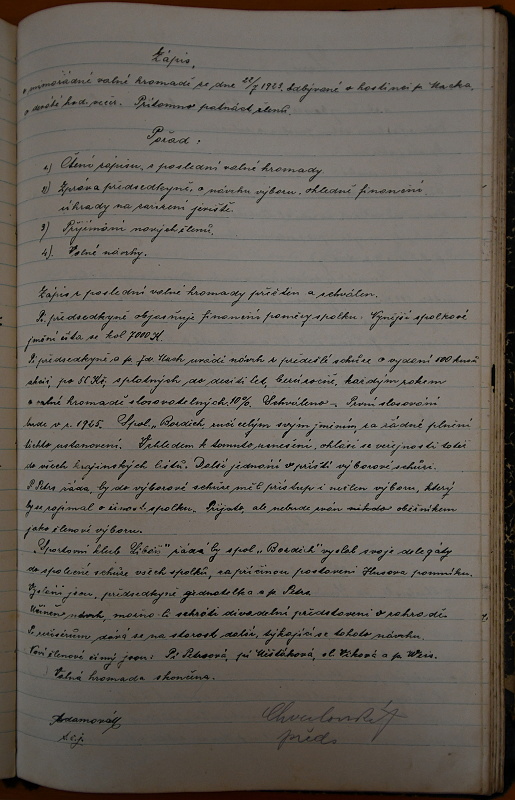 Zápis,
o mimořádné valné hromadě ze dne 22/7 1923. odbývané v hostinci p. Macka,
o deváté hod. večer. Přítomno patnáct členů.
Pořad:
1) Čtení zápisu z poslední valné hromady
2) Zpráva předsedkyně, o návrhu výboru, ohledně finanční
úhrady na zařízení jeviště.
3) Přijímání nových členů.
4) Volné návrhy.
Zápis z poslední valné hromady přečten a schválen.
Pí. předsedkyně objasňuje finanční poměry spolku. Nynější spolkové
jmění čítá se kol 7000 K.
Pí předsedkyně a p. Mach uvádí návrh z předešlé schůze o vydání 100 kusů
akcií, po 50 Kč, splatných do desíti let, bezúročně, každým rokem
o valné hromadě slosovatelných 10%. Schváleno. První slosování
bude v r. 1925. Spol. Bozděch ručí celým svým jměním, za řádné plnění
těchto ustanovení. Vzhledem k tomuto usnesení, ohlásí se veřejnosti totéž
do všech krajinských listů. Další jednání v příští výborové schůzi.
P. Petrs žádá, by do výborové schůze měl přístup i nečlen výboru, který
by se zajímal o činnost spolku. Přijato, ale nebude zván nikdo oběžníkem
jako členové výboru.
"Sportovní klub Liboš" žádá by spol. "Bozděch" vyslal svoje delegáty
do společné schůze všech spolků, za příčinou postavení Husova pomníku.
Vysláni jsou, předsedkyně jednatelka a p. Petrs
Učiněn návrh, možno-li sehráti divadelní představení v zahradě.
P. režisérům dává se na starost další, týkající se tohoto návrhu.
Noví členové činný jsou: Pí Petrsová, pí Uišťáková, sl. Vlková a p. Weis.
Valná hromada skončena.
Adamová
t. č. j.
předs.